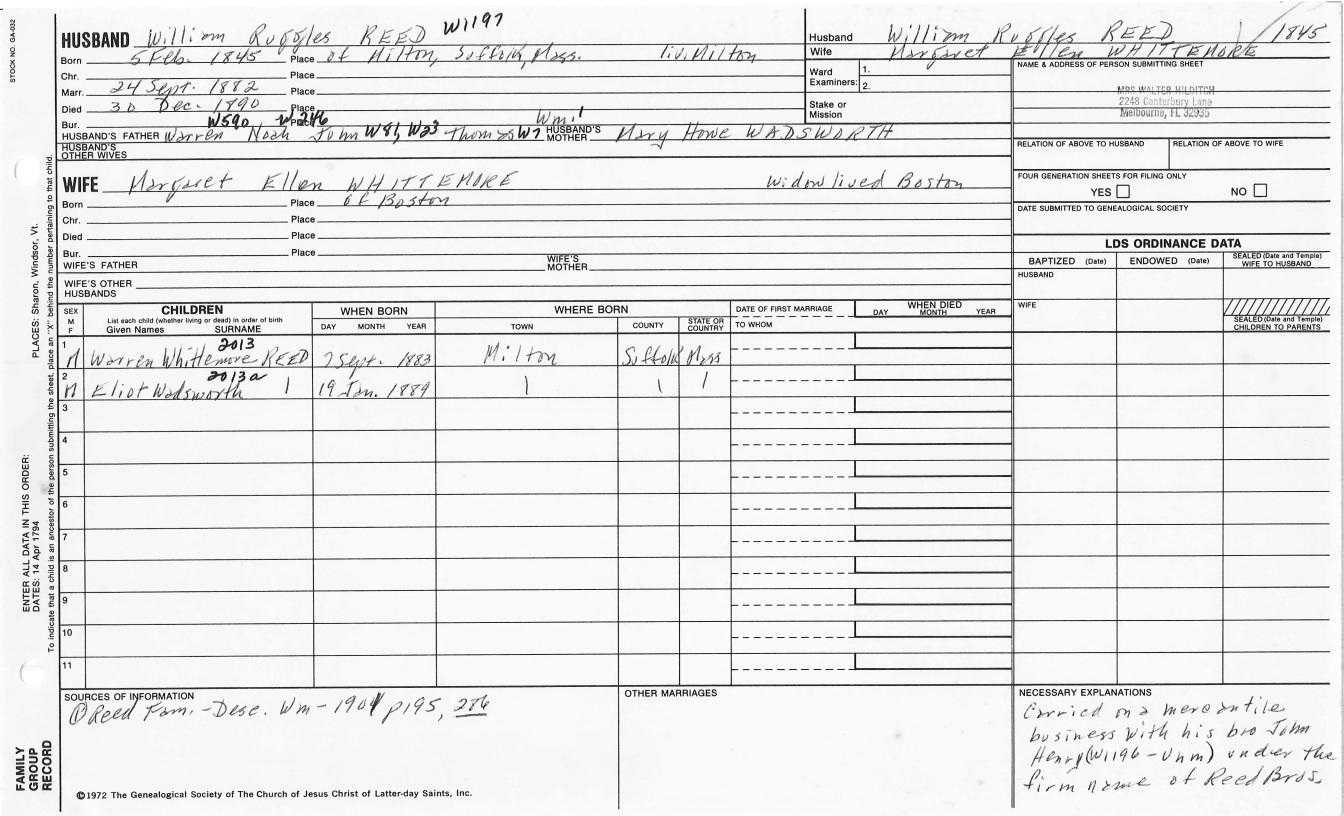 STOCK NO. GA-032
HUSBAND William Ruggles REED W1197
Born 5 Feb. 1845 Place of Milton, Suffolk, Mass. liv. Milton
Chr. Place
Marr. 24 Sept. 1882 Place
Died 30 Dec. 1890 Place
Bur. Place
W590 W246 Wm.1
HUSBAND'S FATHER Warren Noah John W81, W23 Thomas W7 HUSBAND'S MOTHER Mary Howe WADSWORTH
HUSBAND'S OTHER WIVES
WIFE Margaret Ellen WHITTEMORE Widow lived Boston
Born Place of Boston
Chr. Place
Died Place
Bur. Place
WIFE'S FATHER WIFE'S MOTHER
WIFE'S OTHER HUSBANDS
Husband William Ruggles REED 1845
Wife Margaret Ellen WHITTEMORE
Ward Examiners: 1. 2.
Stake or Mission
NAME & ADDRESS OF PERSON SUBMITTING SHEET
MRS WALTER HILDITCH
2248 Canterbury Lane
Melbourne, FL 32935
RELATION OF ABOVE TO HUSBAND RELATION OF ABOVE TO WIFE
FOUR GENERATION SHEETS FOR FILING ONLY
YES NO
DATE SUBMITTED TO GENEALOGICAL SOCIETY
LDS ORDINANCE DATA
BAPTIZED (Date) ENDOWED (Date) SEALED (Date and Temple) WIFE TO HUSBAND
HUSBAND
WIFE
SEALED (Date and Temple) CHILDREN TO PARENTS
SEX M F
CHILDREN
List each child (whether living or dead) in order of birth
Given Names SURNAME
WHEN BORN
DAY MONTH YEAR
WHERE BORN
TOWN COUNTY STATE OR COUNTRY
DATE OF FIRST MARRIAGE
TO WHOM
WHEN DIED
DAY MONTH YEAR
2013
1 M Warren Whittemore REED 7 Sept. 1883 Milton Suffolk Mass
2013a
2 M Eliot Wadsworth 19 Jan. 1889
3
4
5
6
7
8
9
10
11
SOURCES OF INFORMATION
① Reed Fam. - Desc. Wm - 1901 p195, 286
OTHER MARRIAGES
NECESSARY EXPLANATIONS
Carried on a mercantile
business with his bro John
Henry (W1196 - Unm) under the
firm name of Reed Bros.
©1972 The Genealogical Society of The Church of Jesus Christ of Latter-day Saints, Inc.
FAMILY
GROUP
RECORD
ENTER ALL DATA IN THIS ORDER:
DATES: 14 Apr 1794 PLACES: Sharon, Windsor, Vt.
To indicate that a child is an ancestor of the person submitting the sheet, place an "X" behind the number pertaining to that child.